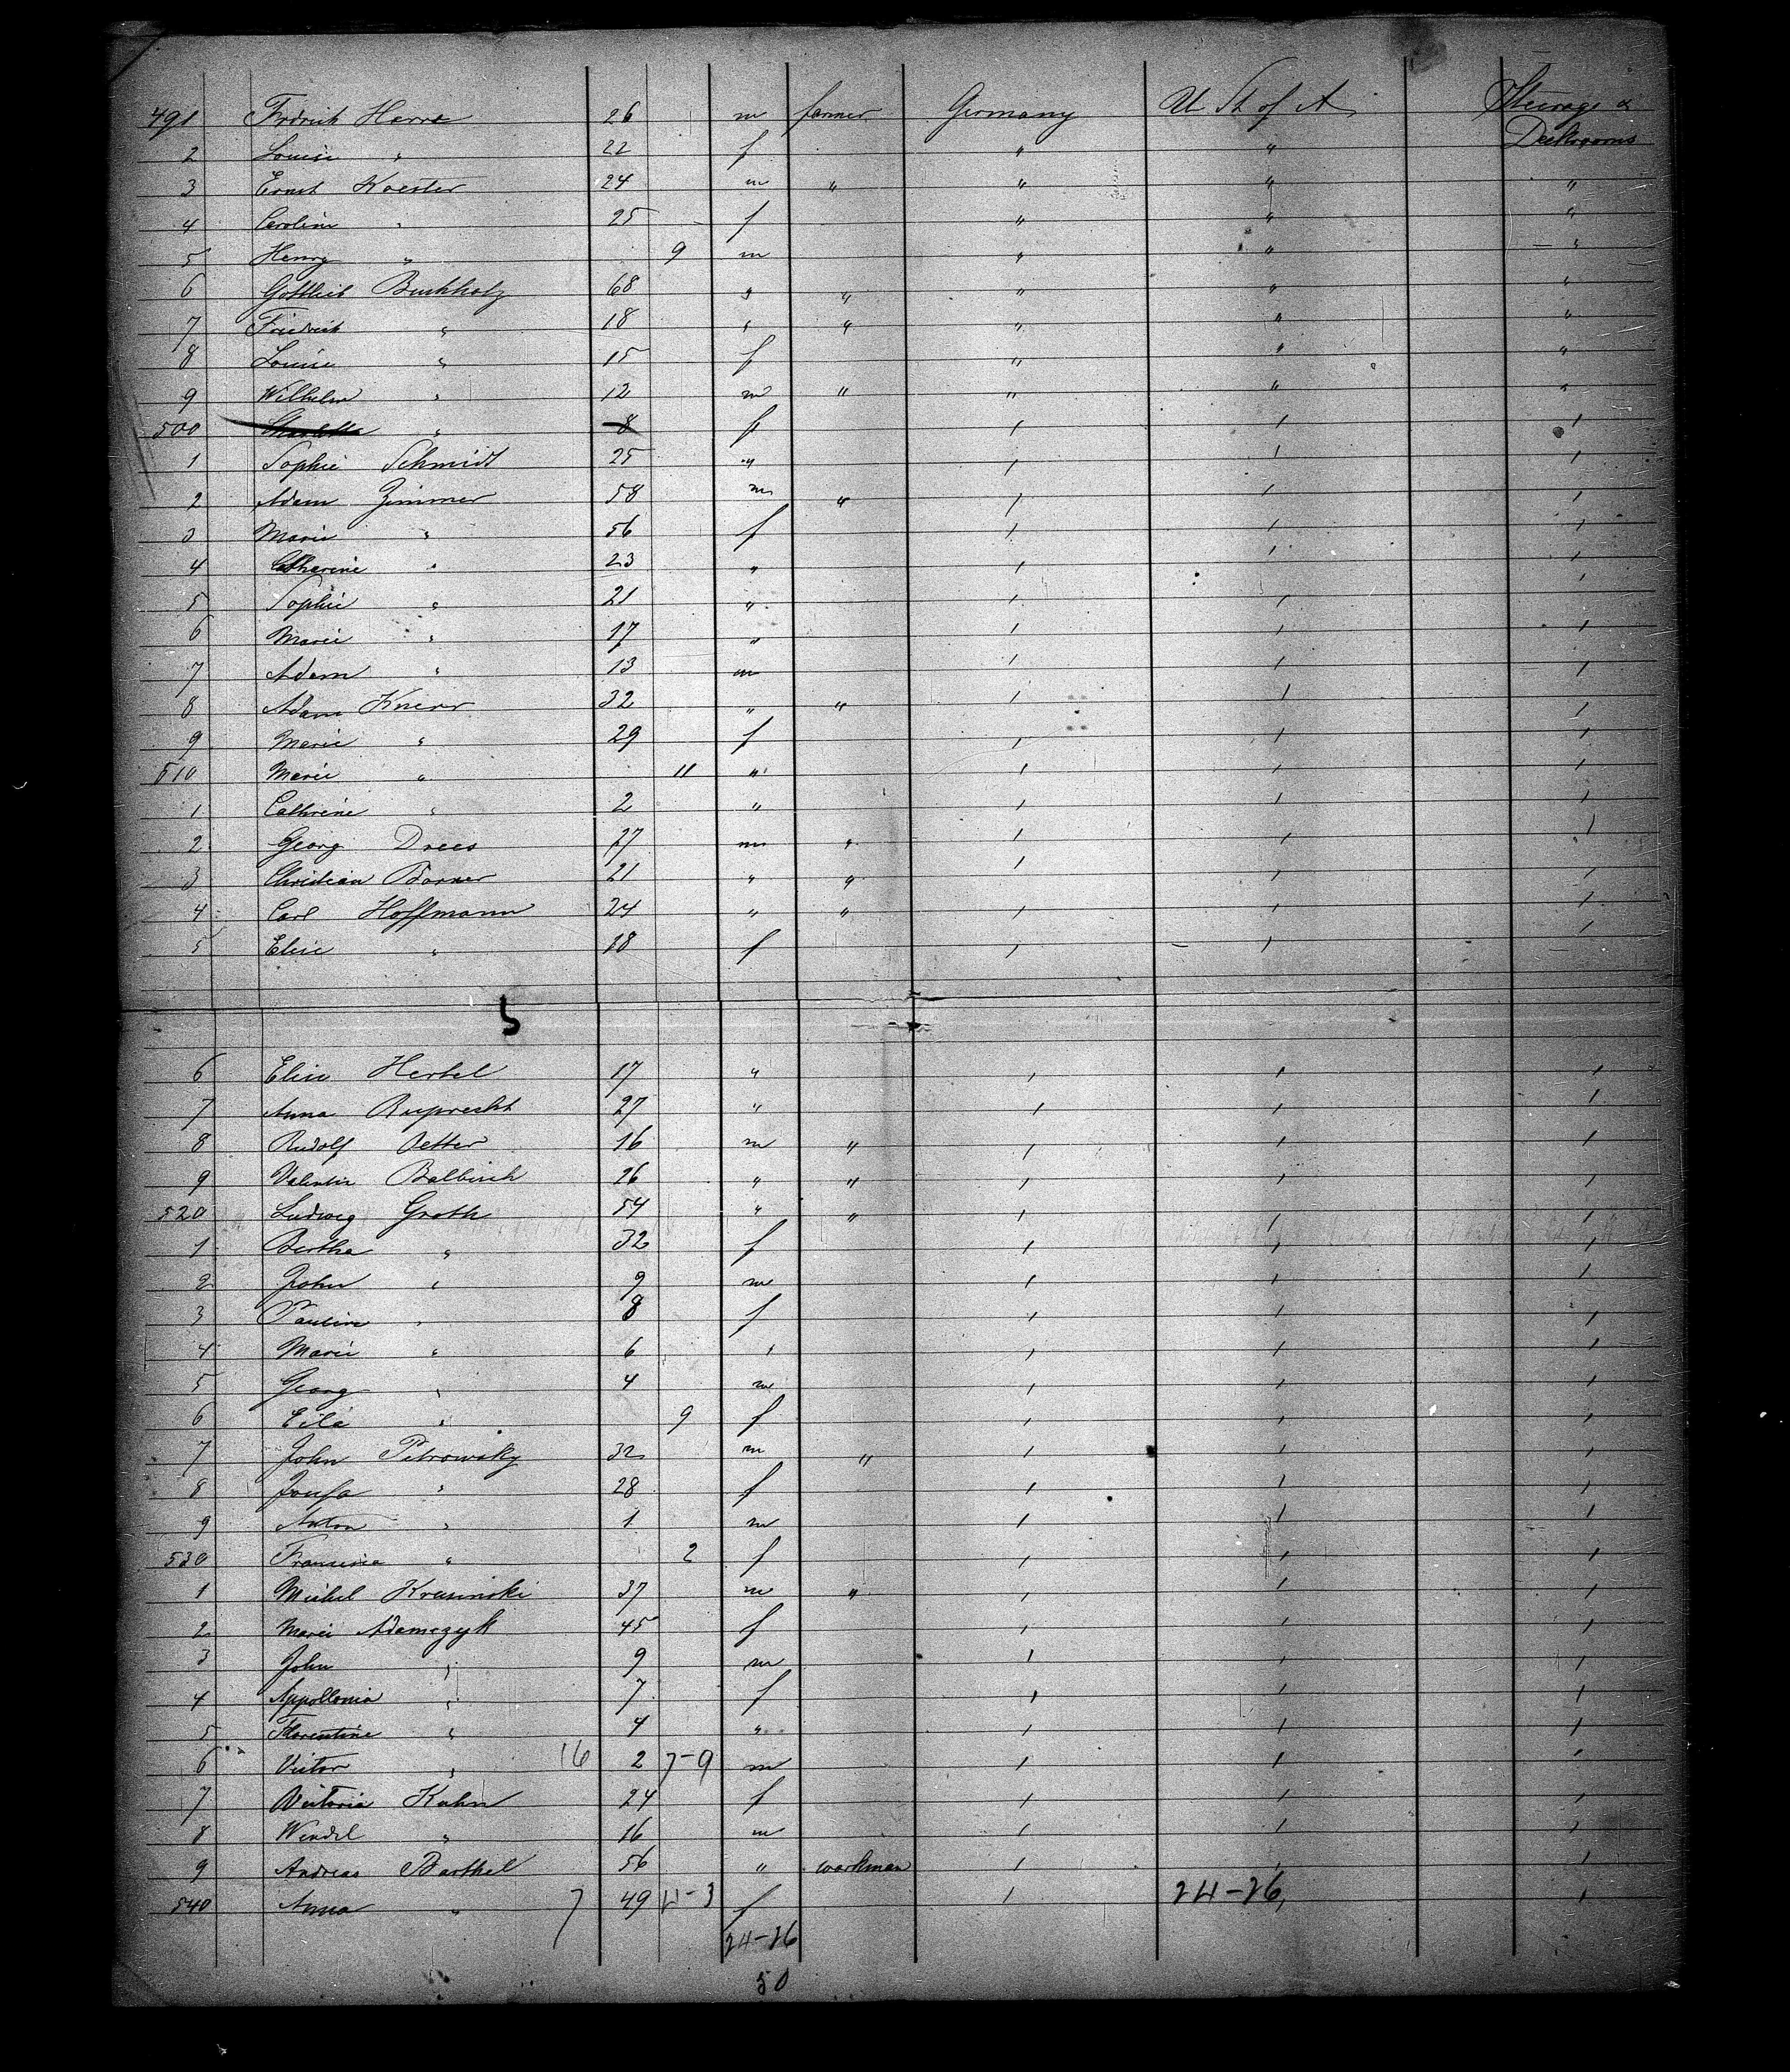 491 Fridrich Harre 26 m farmer Germany U St of A Steerage &
2 Louise " 22 f " " Deckrooms
3 Ernst Koester 24 m " " " "
4 Caroline " 25 f " " "
5 Henry " 9 m " " "
6 Gottlieb Buchholz 68 " " " " "
7 Friedrich " 18 " " " " "
8 Louise " 15 f " " "
9 Wilhelm " 12 m " " " "
500 Charlotte " 8 f " " "
1 Sophie Schmidt 25 " " " "
2 Adam Zimmer 58 m " " " "
3 Marie " 56 f " " "
4 Catharine " 23 " " " "
5 Sophie " 21 " " " "
6 Marie " 17 " " " "
7 Adam " 13 m " " "
8 Adam Knerr 32 " " " " "
9 Marie " 29 f " " "
510 Marie " 11 " " " "
1 Cathrine " 2 " " " "
2 Georg Drees 27 m " " " "
3 Christian Borner 21 " " " " "
4 Carl Hoffmann 24 " " " " "
5 Elise " 18 f " " "
5
6 Elise Hertel 17 " " " "
7 Anna Ruprecht 27 " " " "
8 Rudolf Vetter 16 m " " " "
9 Valentin 26 " " " " "
520 Ludwig Groth 54 " " " " "
1 Bertha " 32 f " " "
2 John " 9 m " " "
3 Pauline " 8 f " " "
4 Marie " 6 " " " "
5 Georg " 4 m " " "
6 " 9 f " " "
7 John Petrowsky 32 m " " " "
8 " 28 f " " "
9 Anton " 1 m " " "
530 " 2 f " " "
1 Michel Krusinski 37 m " " " "
2 Marie Adamczyk 45 f " " "
3 John " 9 m " " "
4 Appollonia " 7 f " " "
5 Florentine " 4 " " " "
6 Victor " 16 2 7-9 m " " "
7 Victoria Kuhn 24 f " " "
8 Wendel " 16 m " " "
9 Andreas Barthel 56 " workman " " "
540 Anna " 7 49 4-3 f " 24-26 "
24-26
50